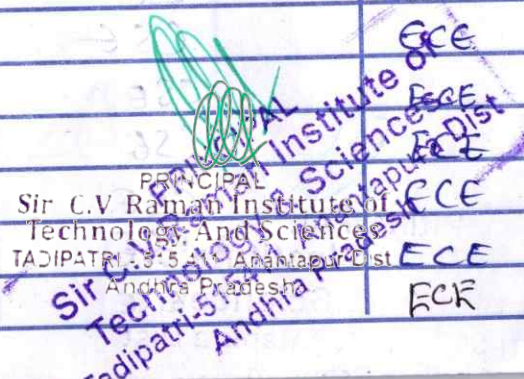 ECE
ECE
ECE
ECE
ECE
ECE
PRINCIPAL
Sir C.V Raman Institute of
Technology And Sciences
TADIPATRI - 515 411 Anantapur Dist
Andhra Pradesh
PRINCIPAL
Sir C.V. Raman Institute of
Technology & Sciences
Tadipatri-515411 Anantapur Dist
Andhra Pradesh